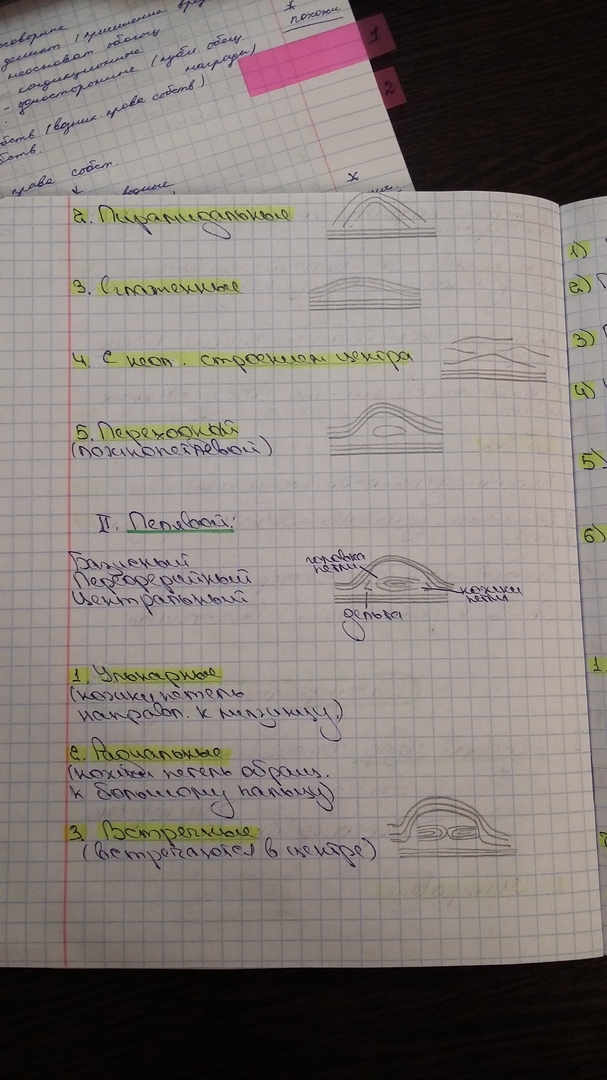 говорние
деликт (причинение вред
неосноват обогащ
кондикционные
- односторонние (публ. обещ.
награды)
бств (возник. права собств)
бств.
права собст.
водные,
*
похожи
1
2
x
2. Пирамидальные
3. Сглаженные
4. С неоп. строением центра
5. Переходный
(ложнопетлевой)
II. Петлевой:
Базисный
Переферийный
Центральный
головка
петли
ножки
петли
дельта
1. Ульнарные
(ножки петель
направл. к мизинцу)
2. Радиальные
(ножки петель обращ.
к большому пальцу)
3. Встречные
(встречаются в центре)
1)
2)
3)
4)
5)
6)
1.